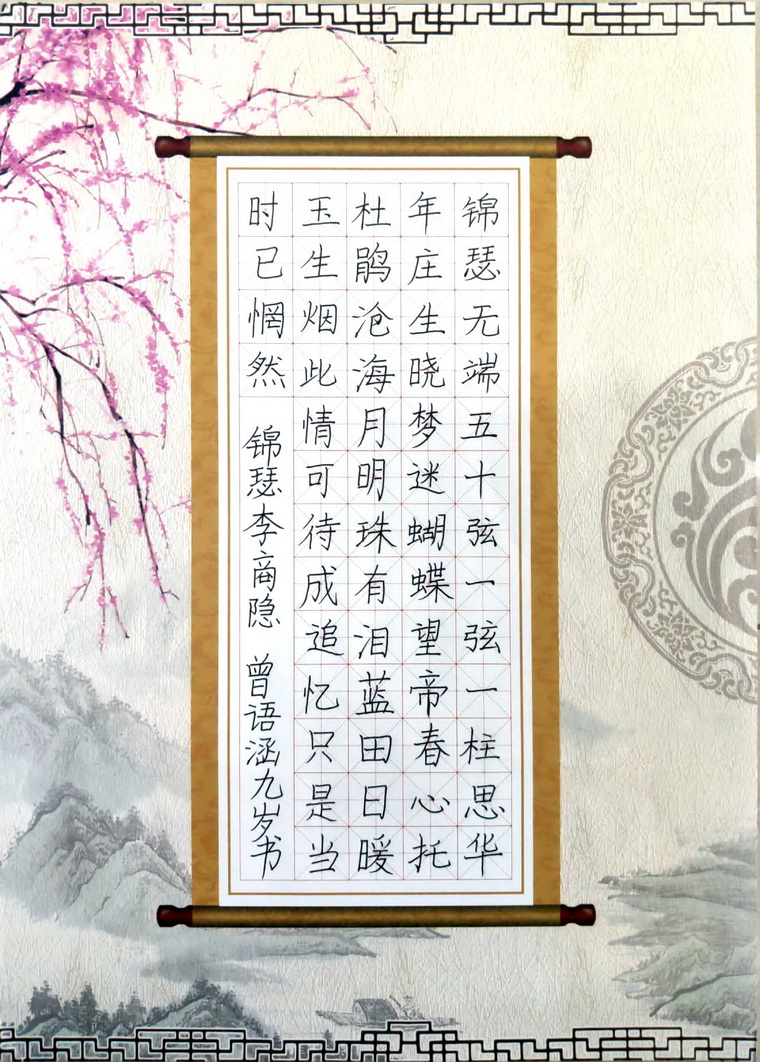 锦瑟无端五十弦一弦一柱思华
年庄生晓梦迷蝴蝶望帝春心托
杜鹃沧海月明珠有泪蓝田日暖
玉生烟此情可待成追忆只是当
时已惘然 锦瑟李商隐 曾语涵九岁书